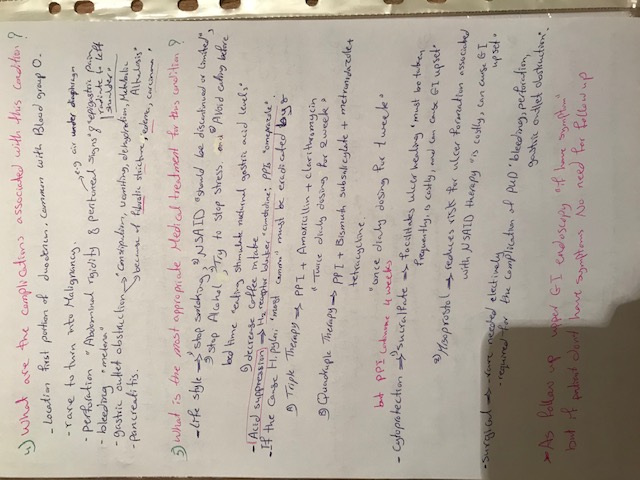 4) What are the complications associated with this condition?
- Location first portion of duodenum, common with Blood group O.
- rare to turn into Malignancy.
- perforation "Abdominal rigidity & peritoneal signs" & epigastric pain radiate to left shoulder"
→ air under diaphragm
- bleeding "melena"
- gastric outlet obstruction → constipation, vomiting, dehydration, Metabolic Alkalosis"
because of stricture, edema, carcinoma,
- pancreatitis.
5) What is the most appropriate Medical treatment to this condition?
- Life style → 1) stop smoking, 2) NSAID "should be discontinued or limited",
3) stop Alcohol, Try to stop stress. Avoid eating before
bed time eating stimulate nocturnal gastric acid levels"
decrease coffee intake
- Acid suppression → H2 receptor blocker "cimitidine; PPIs "omeprazole"
- If the Cause H.pylori "most common" must be eradicated by:
1) Triple Therapy → PPI + Amoxicillin + clarithromycin
"Twice daily dosing for 2 week"
2) Quadruple Therapy → PPI + Bismuth subsalicylate + metronidazole +
tetracycline.
"once daily dosing for 1 week"
but PPI continue 4 weeks
- Cytoprotection → 1) Sucralfate → Facilitates ulcer healing "must be taken
frequently, is costly, and can cause GI upset"
2) Misoprostol → reduces risk for ulcer formation associated
with NSAID therapy "is costly, can cause GI
upset"
- Surgical → rare needed electively
- required for the complication of PUD "bleeding, perforation,
gastric outlet obstruction".
→ As follow up upper GI endoscopy if have symptom
but if patient don't have symptoms No need for follow up